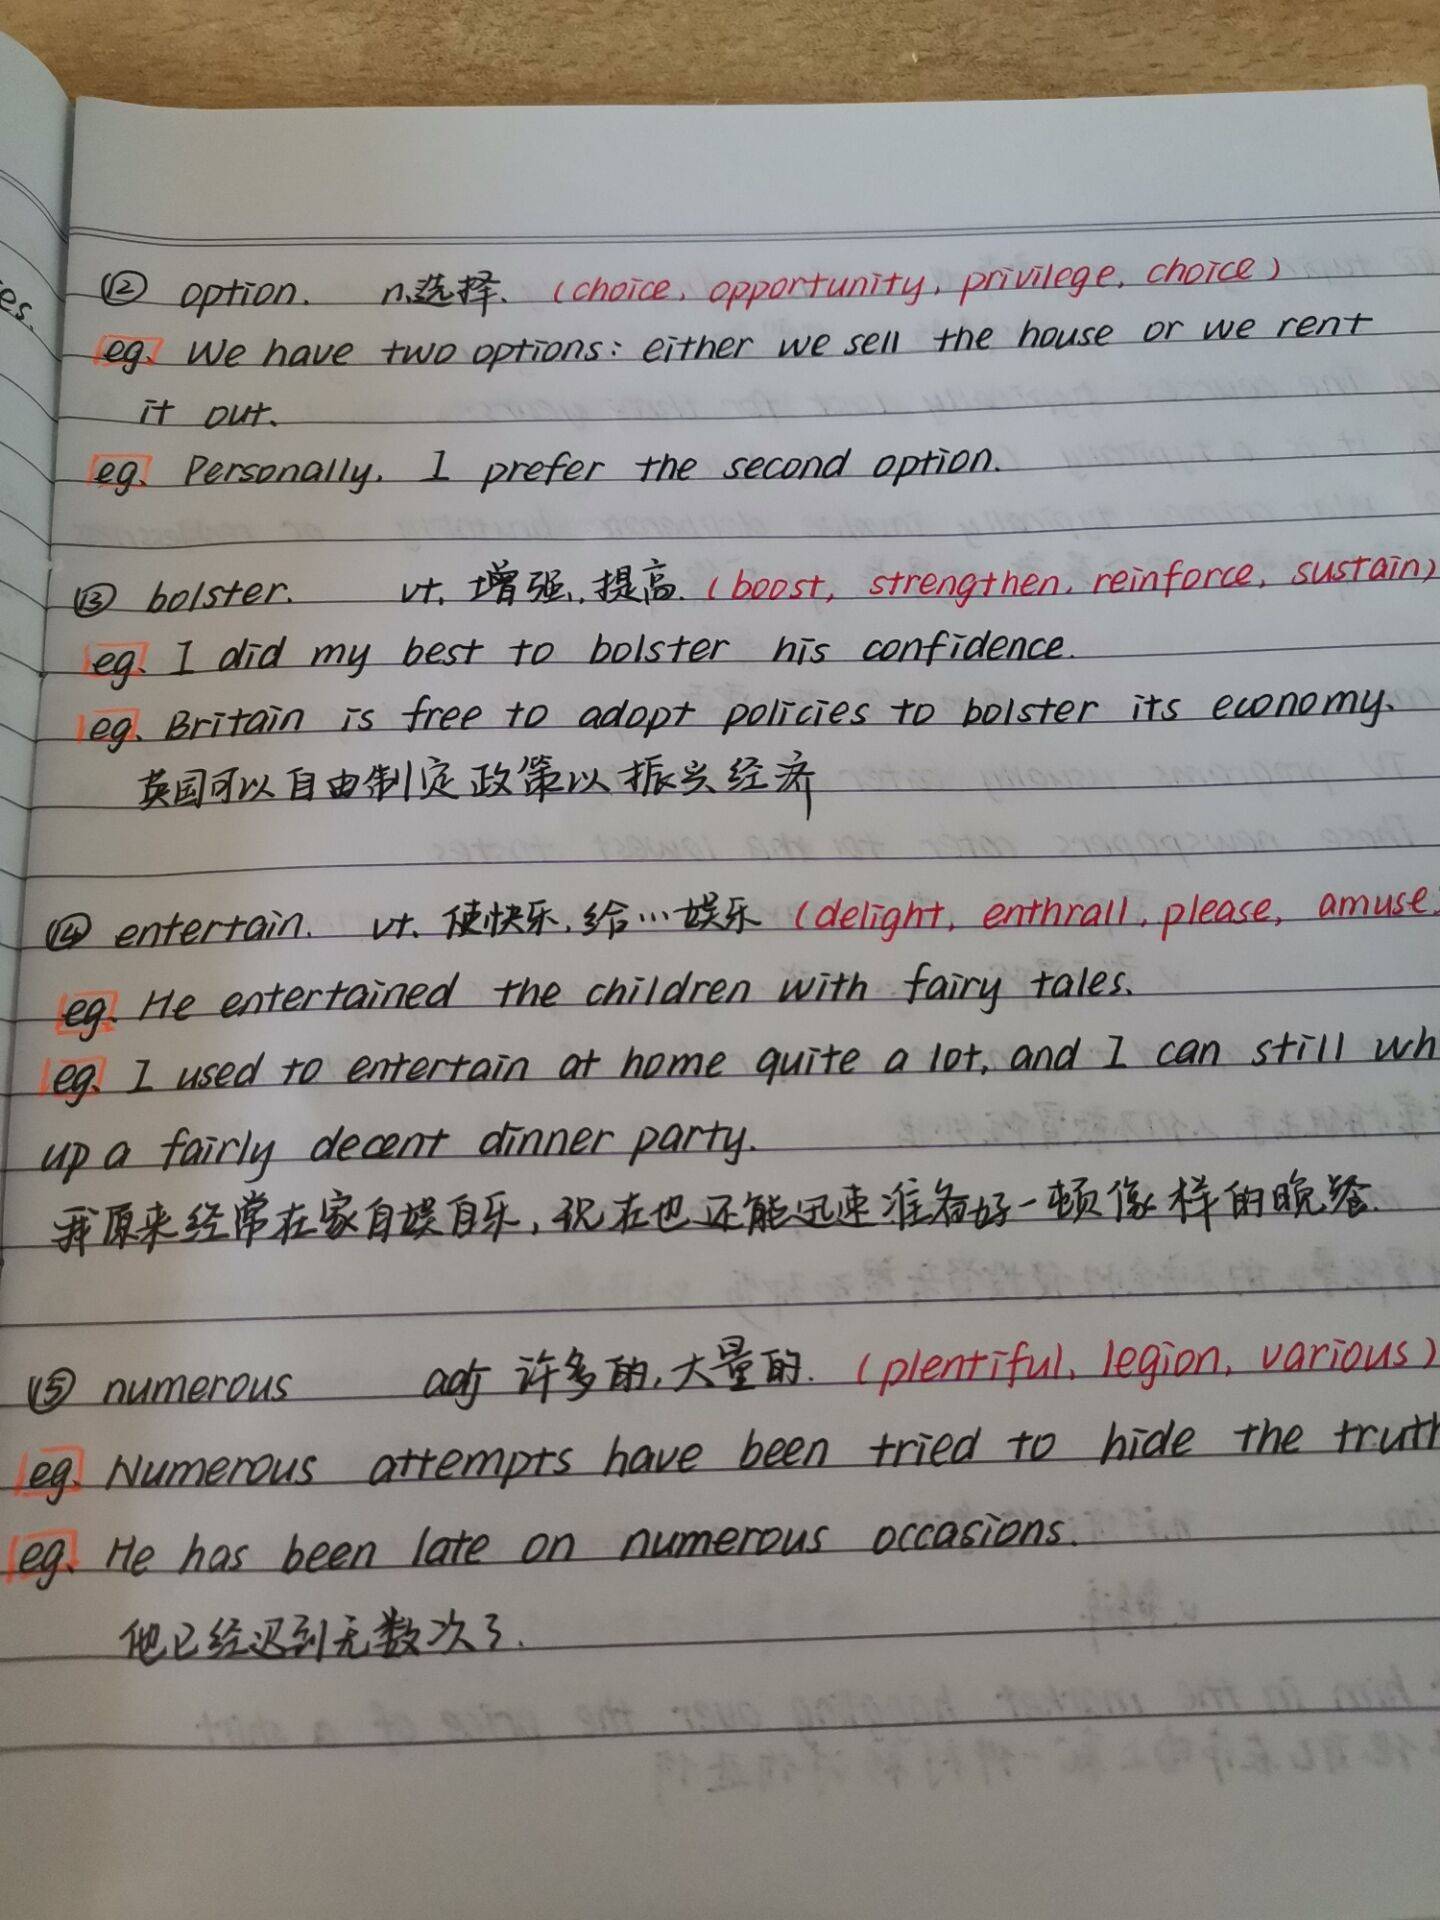 es.
⑫ option. n.选择. (choice, opportunity, privilege, choice)
eg. We have two options: either we sell the house or we rent
it out.
eg. Personally, I prefer the second option.
⑬ bolster. vt. 增强, 提高. (boost, strengthen, reinforce, sustain)
eg. I did my best to bolster his confidence.
eg. Britain is free to adopt policies to bolster its economy.
英国可以自由制定政策以振兴经济
⑭ entertain. vt. 使快乐, 给…娱乐 (delight, enthrall, please, amuse
eg. He entertained the children with fairy tales.
eg. I used to entertain at home quite a lot, and I can still wh
up a fairly decent dinner party.
我原来经常在家自娱自乐, 现在也还能迅速准备好一顿像样的晚餐.
⑮ numerous adj 许多的, 大量的. (plentiful, legion, various)
eg. Numerous attempts have been tried to hide the truth
eg. He has been late on numerous occasions.
他已经迟到无数次了.